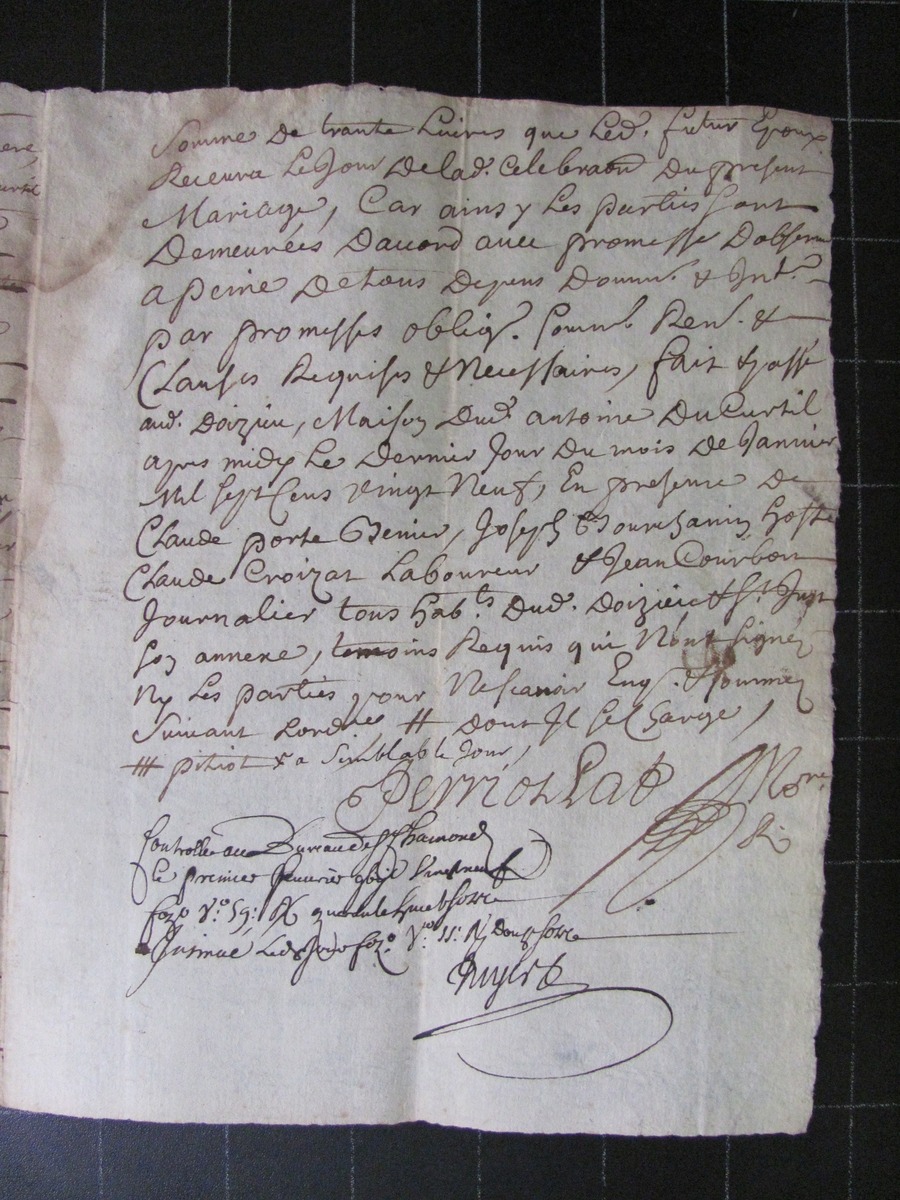 Somme de trante Livres que Led. futur Epoux
Recevra Le Jour de lad. Celebraon du present
Mariage, Car ainsy Les parties sont
Demeurées Daccord avec promesse Dobserver
a peine de tous Depens Domm. & Int.
par promesses oblig. soumis. Ren. &
Clauses Requises & Necessaires, fait & passé
aud. Doizieu, Maison Dud. antoine Du Curtil
apres midy Le Dernier Jour Du mois de Janvier
Mil sept Cens vingt Neuf, En presence de
Claude porte Joseph hoste
Claude Croizat Laboureur & Jean Courbon
Journalier tous hab.ts Dud. Doizieu & St. Just
son annexe, temoins Requis qui N'ont signés
Ny les parties pour Ne scavoir Enq. & sommez
Suivant Lord.ce # dont Il se Charge,
# pitiot & a Semblable Jour,
Perriolat No.re
R.
Controlle au Bureau de St Chamond
le premier feuvrier vingt neuf
fo. v.o 59: R/
Insinué Led. Jour fo. v.o 11: R/ Douze sols